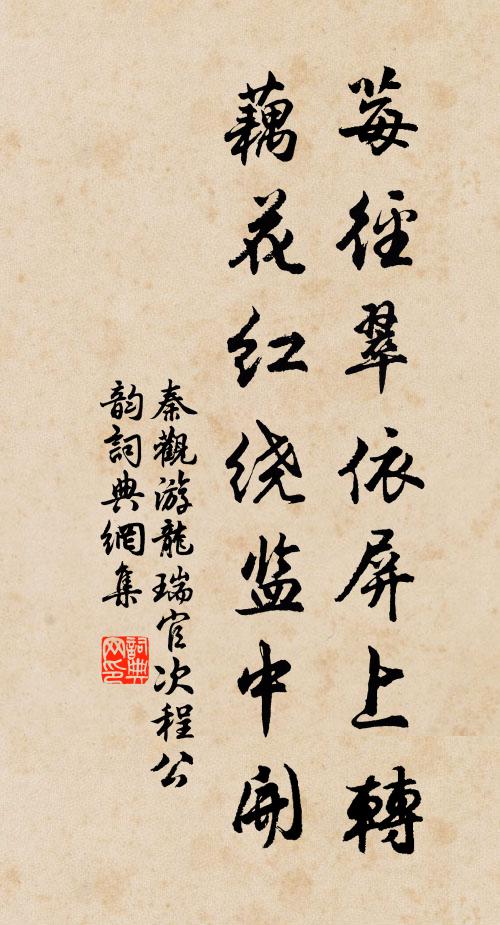 莓徑翠依屏上轉
藕花红绕监中開
秦觀游龍瑞官次程公
韵詞典網集
詞典网印